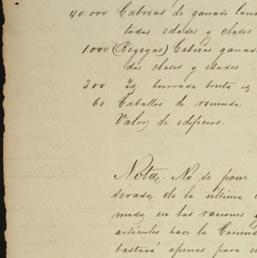 40.000 Cabezas de ganado lana
todas edades y clases
1000 (Reyegas) Cabezas ganad
das clases y edades
300 Id. burrada bruta eq
60 Caballos de remuda
Valor de edificios.
Nota. No se pone
derada de la ultima
en las raciones
articulos hace la
bastará apenas para